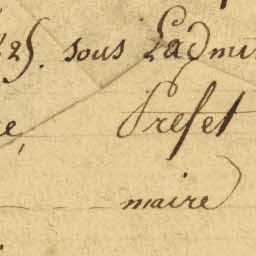 25. sous Ladmi
e, Prefet
maire